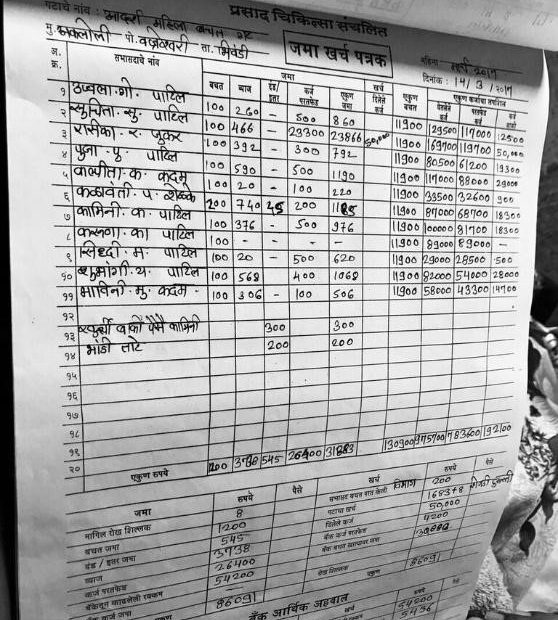 गटाचे नांव : आदर्श महिला बचत गट
प्रसाद चिकित्सा संचलित
मु. पो. वज्रेश्वरी ता. भिवंडी
जमा खर्च पत्रक
महिना मार्च 2017
दिनांक : 14/3/2017
अ. क्र. सभासदाचे नांव जमा खर्च
बचत व्याज दंड/इतर कर्ज परतफेड एकुण जमा दिलेले कर्ज एकुण बचत एकुण कर्जाचा तपशिल
१ उज्वला. गो. पाटिल 100 260 - 500 860 11900 129500 117000 12500
२ सुचिता. सु. पाटिल 100 466 - 29300 23866 50,000 11900 169700 119700 50,000
३ रासीका. र. जुकर 100 392 - 300 792 11900 80500 61200 19300
४ पुजा. पु. पाटिल 100 590 - 500 1190 11900 117000 88000 29000
५ क. कदम 100 20 - 100 220 11900 33500 32600 900
६ कळावती. प. शेळके 200 740 45 200 1185 11900 87000 68700 18300
७ कामिनी. क. पाटिल 100 376 - 500 976 11900 100000 81700 18300
८ का. पाटिल 100 - - - - 11900 89000 89000 -
९ सिध्दी. म. पाटिल 100 20 - 500 620 11900 29000 28500 500
१० शुभांगी. य. पाटिल 100 568 - 400 1068 11900 82000 54000 28000
११ भाविनी. मु. कदम. 100 306 - 100 506 11900 58000 43300 14700
१२
१३ बाकी पैसे कामिनी 300 300
१४ भांडी तोटे 200 200
१५
१६
१७
१८
१९
२० एकुण रुपये 1200 3738 545 26400 31883 130900 975700 783600 192100
जमा रुपये पैसे खर्च रुपये पैसे
मागिल रोख शिल्लक 8
बचत जमा 1200
दंड / इतर जमा 545
व्याज 3738
कर्ज परतफेड 26400
बँकेतून काढलेली रक्कम 54200
86091
दिलेले कर्ज 50,000
बँक कर्ज परतफेड 4200
रोख शिल्लक
एकुण 86091
बँक आर्थिक अहवाल
54200
5436